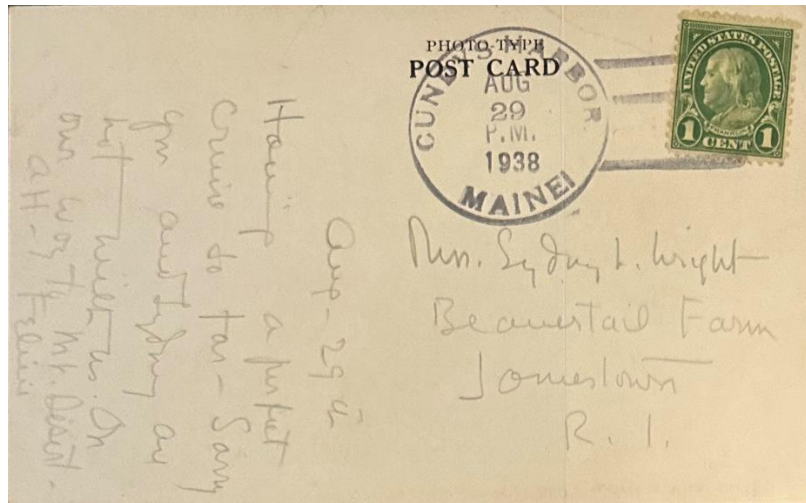 PHOTO-TYPE
POST CARD
CUNDY'S HARBOR
AUG
29
P.M.
1938
MAINE
UNITED STATES POSTAGE
FRANKLIN
1 CENT 1
Mrs. Sydney L. Wright
Beavertail Farm
Jamestown
R. I.
Aug - 29th
Having a perfect
Cruise so far - Sorry
you and Sydney are
not with us. On
our way to Mt. Desert -
aff-